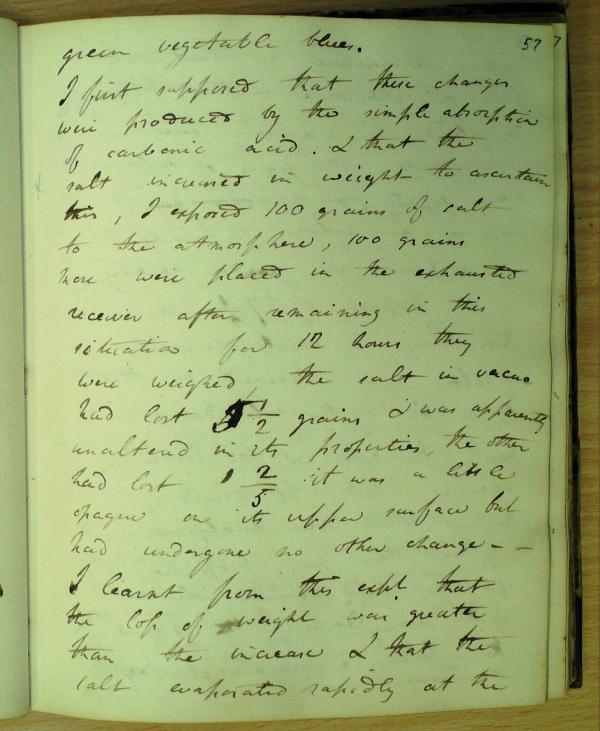 57 7
green vegetable blues.
I first supposed that these changes
were produced by the simple absorption
of carbonic acid. & that the
salt increased in weight to ascertain
this, I exposed 100 grains of salt
to the atmosphere, 100 grains
more were placed in the exhausted
receiver after remaining in this
situation for 12 hours they
were weighed, the salt in vacuo
had lost 1/2 grains & was apparently
unaltered in its properties, the other
had lost 1 2/5 it was a little
opaque on its upper surface but
had undergone no other change - -
I learnt from this expt that
the loss of weight was greater
than the increase & that the
salt evaporated rapidly at the